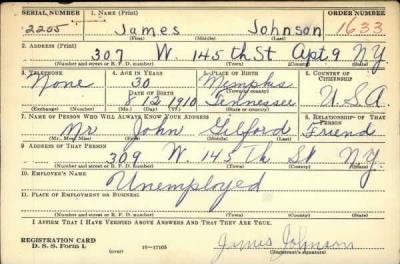 SERIAL NUMBER 1. NAME (Print) ORDER NUMBER
2205 James Johnson 1633
(First) (Middle) (Last)
2. ADDRESS (Print)
307 W. 145th St Apt. 9 NY
(Number and street or R. F. D. number) (Town) (County) (State)
3. TELEPHONE 4. AGE IN YEARS 5. PLACE OF BIRTH 6. COUNTRY OF CITIZENSHIP
None 30 Memphis
DATE OF BIRTH (Town or county)
8 12 1910 Tennessee U.S.A
(Exchange) (Number) (Mo.) (Day) (Yr.) (State or country)
7. NAME OF PERSON WHO WILL ALWAYS KNOW YOUR ADDRESS 8. RELATIONSHIP OF THAT PERSON
Mr John Gilford Friend
(Mr., Mrs., Miss) (First) (Middle) (Last)
9. ADDRESS OF THAT PERSON
309 W. 145 Th St N.Y.
(Number and street or R. F. D. number) (Town) (County) (State)
10. EMPLOYER'S NAME
Unemployed
11. PLACE OF EMPLOYMENT OR BUSINESS
(Number and street or R. F. D. number) (Town) (County) (State)
I AFFIRM THAT I HAVE VERIFIED ABOVE ANSWERS AND THAT THEY ARE TRUE.
REGISTRATION CARD
D. S. S. Form 1. (over) 16—17105 James Johnson
(Registrant's signature)